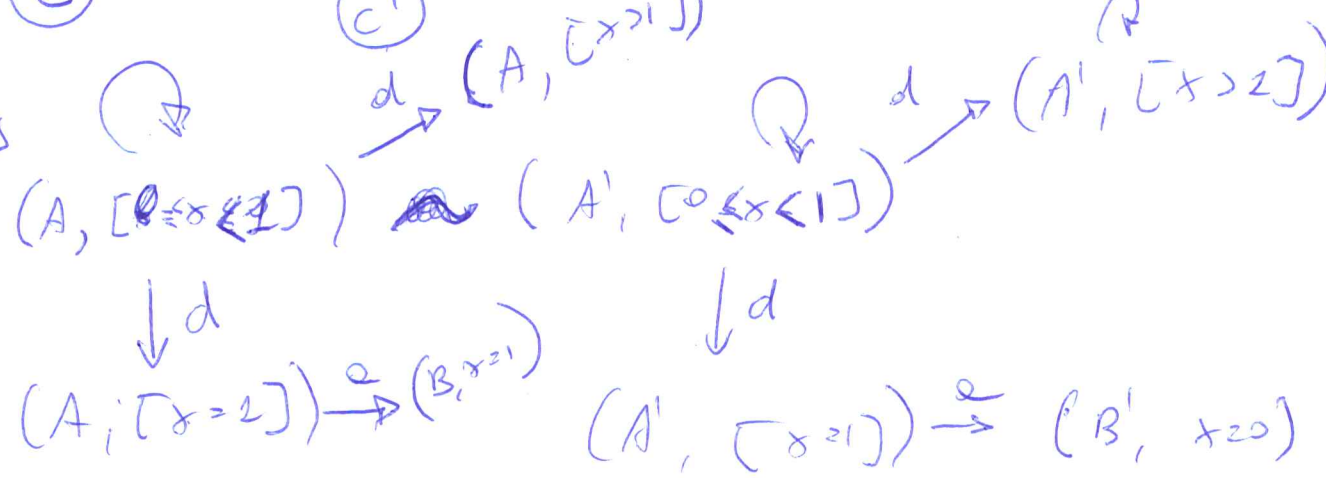 C'
d (A, [x>1])
d (A', [x>1])
(A, [0≤x<1]) (A', [0≤x<1])
d d
(A, [x=1]) a (B, x=1)
(A', [x=1]) a (B', x=0)